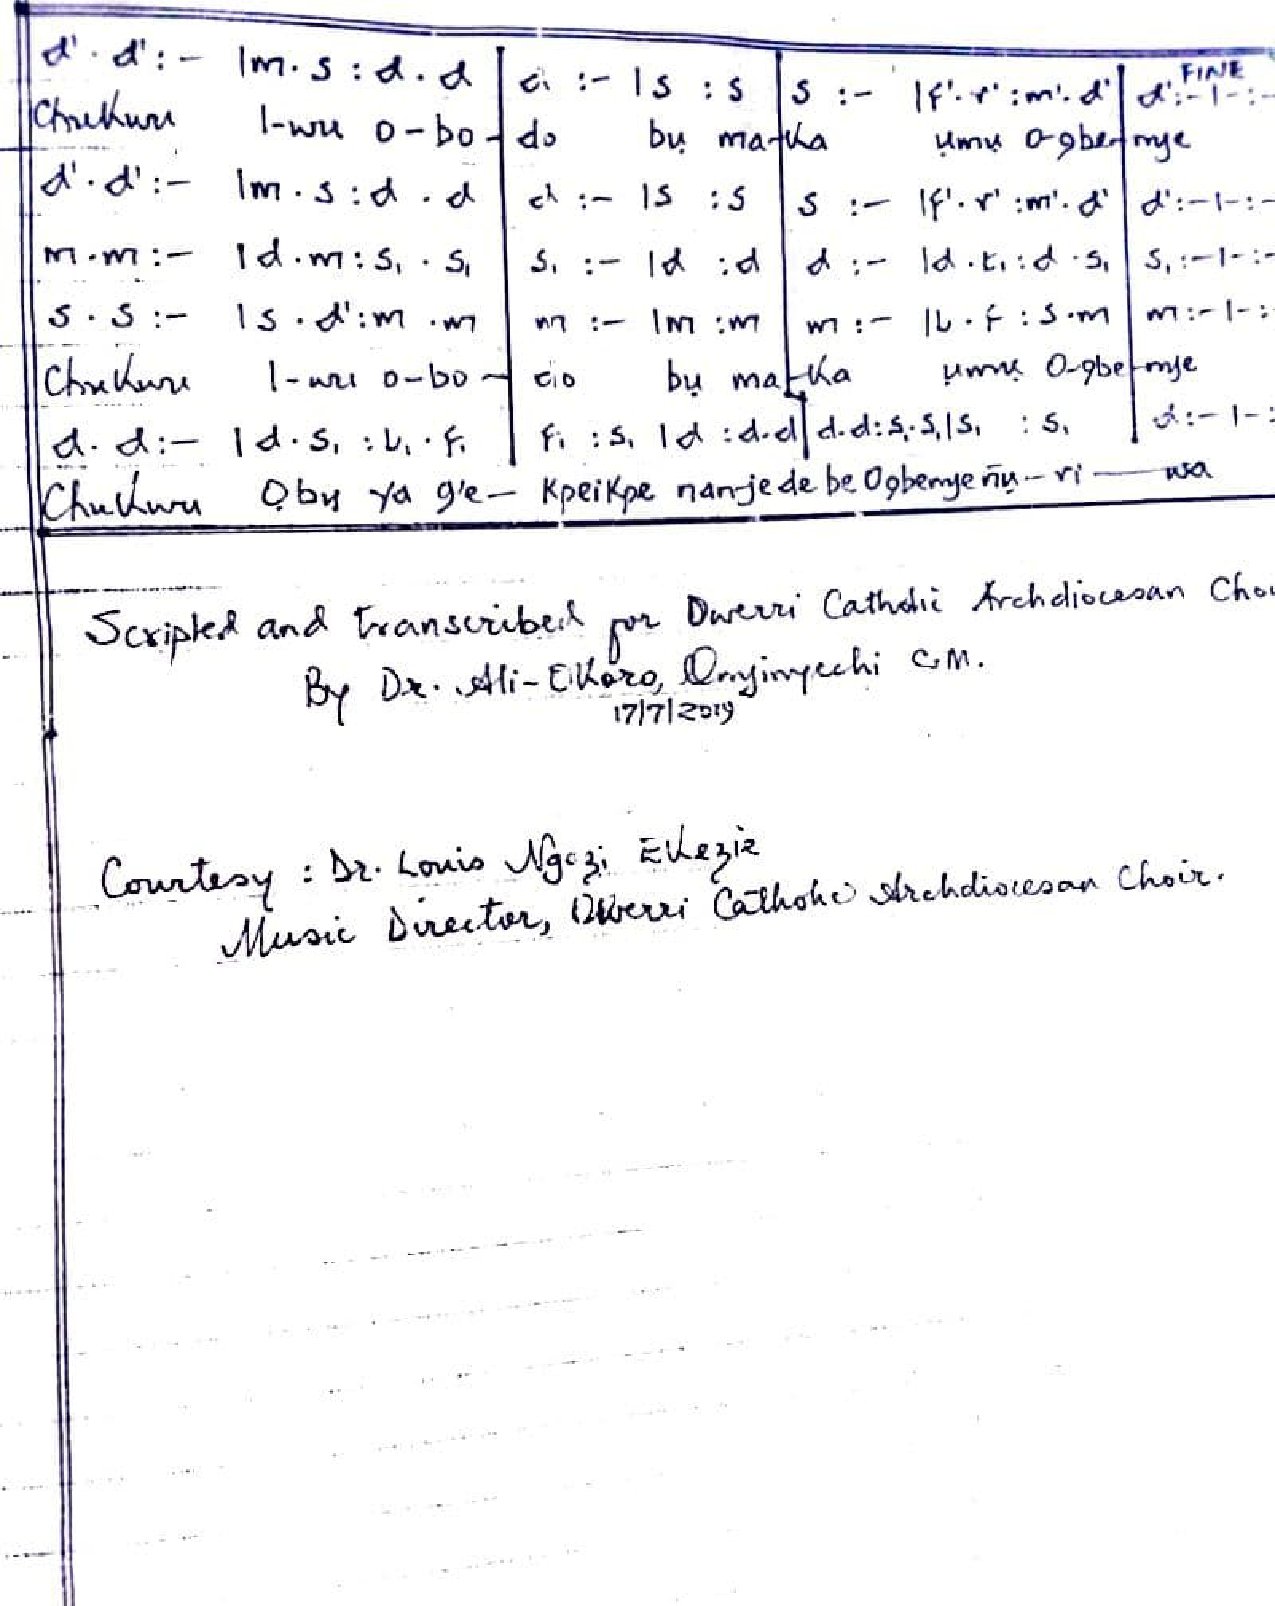 d' . d' :- | m . s : d . d | d :- | s : s | s :- | f' . r' : m' . d' | d' :- | - : -
FINE
Chukwu I-wu o-bo-do bụ ma-ka ụmụ O-gbe-nye
d' . d' :- | m . s : d . d | d :- | s : s | s :- | f' . r' : m' . d' | d' :- | - : -
m . m :- | d . m : s₁ . s₁ | s₁ :- | d : d | d :- | d . t₁ : d . s₁ | s₁ :- | - : -
s . s :- | s . d' : m . m | m :- | m : m | m :- | l . f : s . m | m :- | - :
Chukwu I-wu o-bo-do bụ ma-ka ụmụ O-gbe-nye
d . d :- | d . s₁ : l₁ . f₁ | f₁ : s₁ | d : d . d | d . d : s₁ . s₁ | s₁ : s₁ | d :- | - :
Chukwu Ọbụ ya g'e- kpeikpe nanjede be Ogbenye ñụ-ri — wa
Scripted and transcribed for Owerri Catholic Archdiocesan Choi
By Dr. Ali-Okoro, Onyinyechi G.M.
17/7/2019
Courtesy : Dr. Louis Ngozi Ekezie
Music Director, Owerri Catholic Archdiocesan Choir.